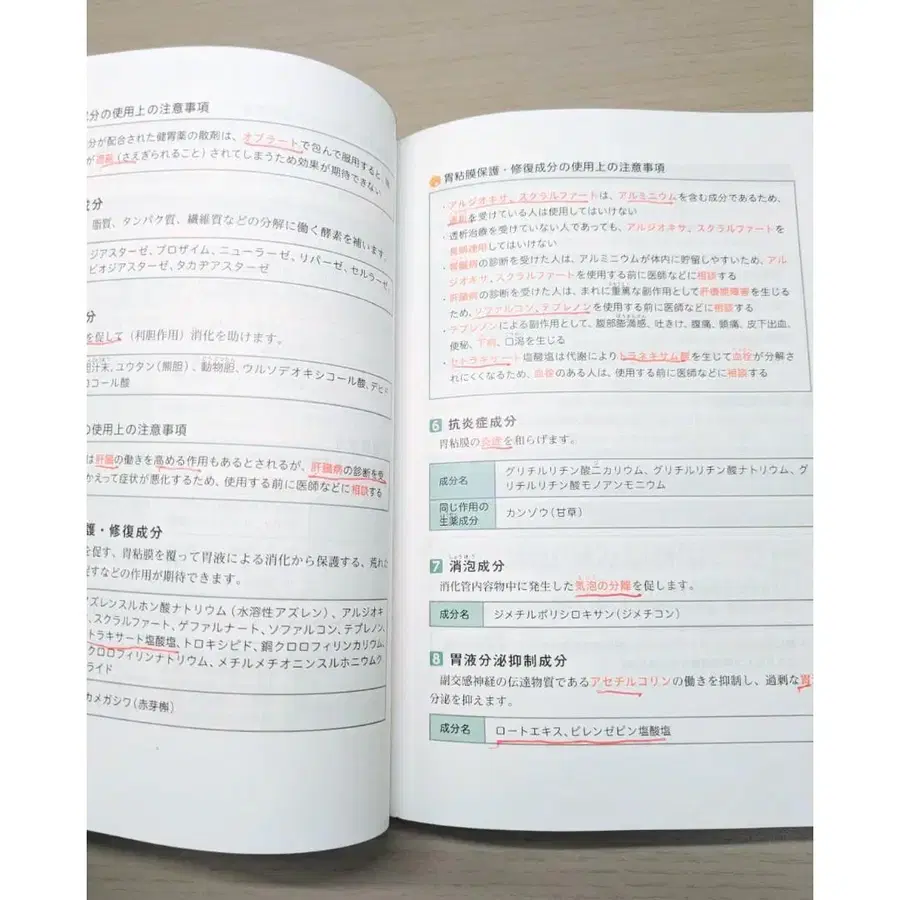 成分の使用上の注意事項
分が配合された健胃薬の散剤は、オブラートで包んで服用すると、
が遮蔽(さえぎられること)されてしまうため効果が期待できない
成分
脂質、タンパク質、繊維質などの分解に働く酵素を補います。
ジアスターゼ、プロザイム、ニューラーゼ、リパーゼ、セルラーゼ、
ビオジアスターゼ、タカヂアスターゼ
分
を促して(利胆作用)消化を助けます。
胆汁末、ユウタン(熊胆)、動物胆、ウルソデオキシコール酸、デヒ
コール酸
の使用上の注意事項
は肝臓の働きを高める作用もあるとされるが、肝臓病の診断を受
かえって症状が悪化するため、使用する前に医師などに相談する
護・修復成分
を促す、胃粘膜を覆って胃液による消化から保護する、荒れた
促すなどの作用が期待できます。
アズレンスルホン酸ナトリウム(水溶性アズレン)、アルジオキ
、スクラルファート、ゲファルナート、ソファルコン、テプレノン、
トラキサート塩酸塩、トロキシピド、銅クロロフィリンカリウム、
クロロフィリンナトリウム、メチルメチオニンスルホニウムク
ライド
カメガシワ(赤芽槲)
胃粘膜保護・修復成分の使用上の注意事項
・アルジオキサ、スクラルファートは、アルミニウムを含む成分であるため、
透析を受けている人は使用してはいけない
・透析治療を受けていない人であっても、アルジオキサ、スクラルファートを
長期連用してはいけない
・腎臓病の診断を受けた人は、アルミニウムが体内に貯留しやすいため、アル
ジオキサ、スクラルファートを使用する前に医師などに相談する
・肝臓病の診断を受けた人は、まれに重篤な副作用として肝機能障害を生じる
ため、ソファルコン、テプレノンを使用する前に医師などに相談する
・テプレノンによる副作用として、腹部膨満感、吐きけ、腹痛、頭痛、皮下出血、
便秘、下痢、口渇を生じる
・セトラキサート塩酸塩は代謝によりトラネキサム酸を生じて血栓が分解さ
れにくくなるため、血栓のある人は、使用する前に医師などに相談する
6 抗炎症成分
胃粘膜の炎症を和らげます。
成分名 グリチルリチン酸二カリウム、グリチルリチン酸ナトリウム、グ
リチルリチン酸モノアンモニウム
同じ作用の
生薬成分 カンゾウ(甘草)
7 消泡成分
消化管内容物中に発生した気泡の分離を促します。
成分名 ジメチルポリシロキサン(ジメチコン)
8 胃液分泌抑制成分
副交感神経の伝達物質であるアセチルコリンの働きを抑制し、過剰な胃
分泌を抑えます。
成分名 ロートエキス、ピレンゼピン塩酸塩